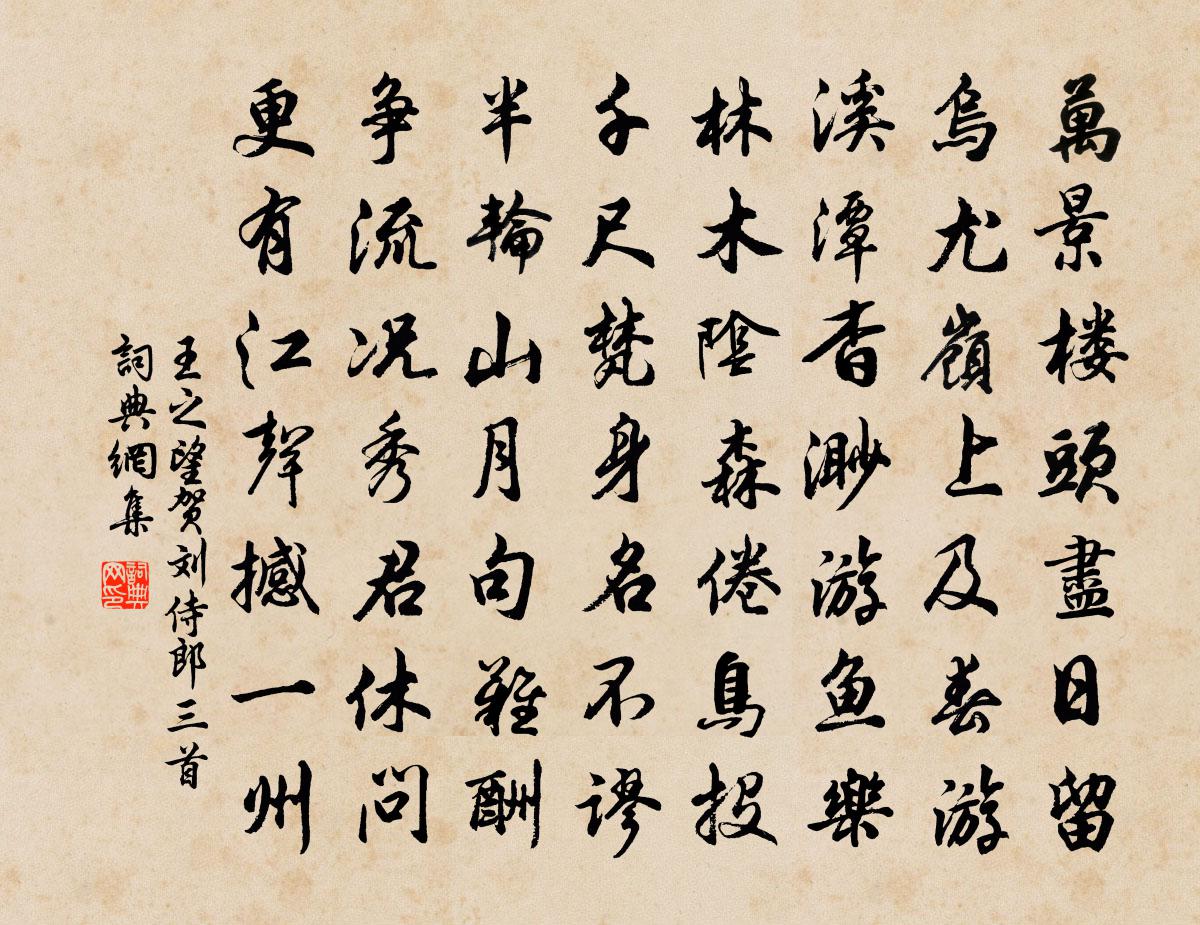 萬景楼頭盡日留
烏尤嶺上及春游
溪潭杳渺游魚樂
林木陰森倦鳥投
千尺梵身名不謬
半輪山月句難酬
争流况秀君休問
更有江聲撼一州
王之望贺刘侍郎三首
詞典網集
詞典网印